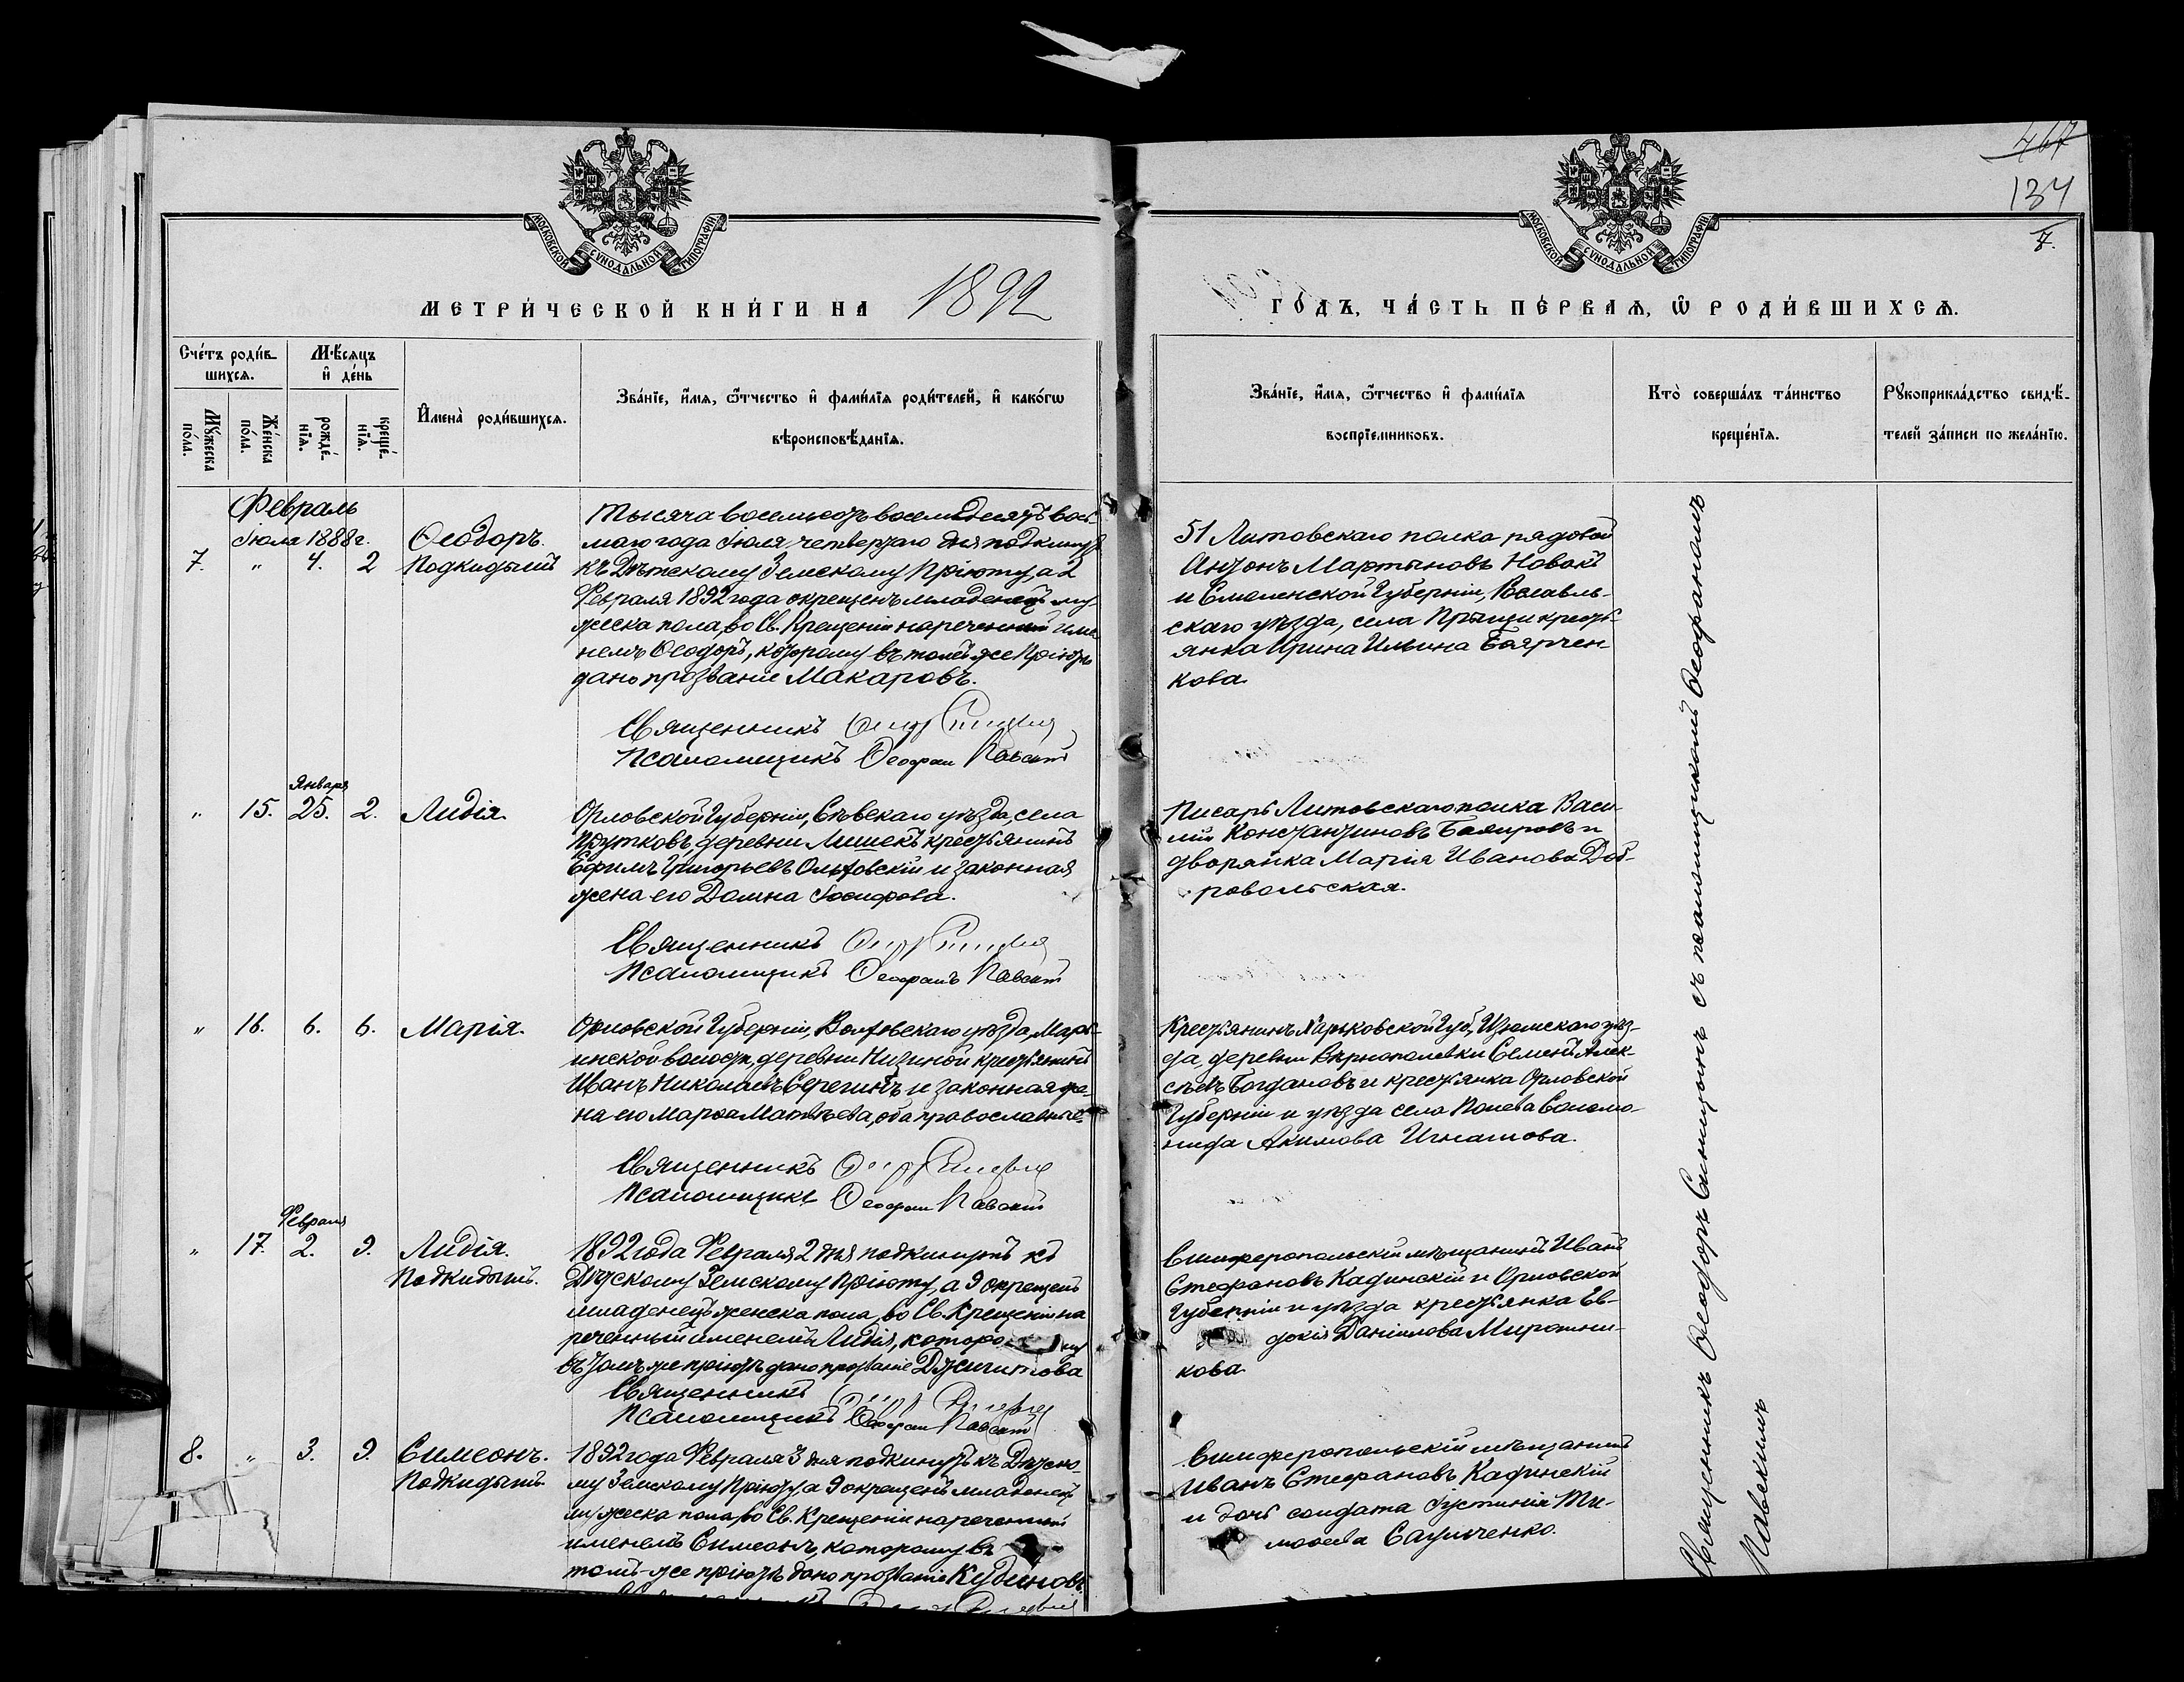 467
134
7.
МОСКОВСКОЙ СѴНОДАЛЬНОЙ ТИПОГРАФІИ
МОСКОВСКОЙ СѴНОДАЛЬНОЙ ТИПОГРАФІИ
МЕТРИ́ЧЕСКОЙ КНИ́ГИ НА 1892
ГО́ДЪ, ЧА́СТЬ ПЕ́РВАЯ, Ѡ РОДИ́ВШИХСЯ.
Сче́тъ роди́в-
шихся.
Мѣ́сяцъ
и҆ де́нь
Мꙋ́жеска
по́ла.
Же́нска
по́ла.
рожде́-
нїѧ.
креще́-
нїѧ.
И҆мена̀ роди́вшихся.
Зва́нїе, и҆́мя, ѻ҆́тчество и҆ фами́лїя роди́телей, и҆ како́гѡ
вѣроисповѣ́данїя.
Зва́нїе, и҆́мя, ѻ҆́тчество и҆ фами́лїя
воспрїе́мниковъ.
Кто̀ соверша́лъ та́инство
креще́нїя.
Рꙋкоприкла́дство свидѣ́-
телей за́писи по жела́нїю.
Февраль
Іюля 1888 г.
7. " 4. 2
Ѳеодоръ.
Подкидышъ
Тысяча восемьсотъ восемьдесятъ вось-
маго года Іюля четвертаго дня подкинутъ
къ Дѣтскому Земскому Пріюту, а 2
Февраля 1892 года окрещенъ младенецъ му-
жеска пола, во Св. Крещеніи нареченный име-
немъ Ѳеодоръ, которому въ томъ же Пріютѣ
дано прозваніе Макаровъ.
Священникъ
Псаломщикъ Ѳеофан Павскій
51 Литовскаго полка рядовой
Антонъ Мартыновъ Новакъ
и Смоленской Губерніи, Рославль-
скаго уѣзда, села Прыщи кресть-
янка Ирина Ильина Боярчен-
кова.
Января
" 15. 25. 2. Лидія.
Орловской Губерніи, Сѣвскаго уѣзда, села
Прутковъ, деревни Лишекъ крестьянинъ
Ефимъ Григорьевъ Ольховскій и законная
жена его Домна Іосифова.
Священникъ
Псаломщикъ Ѳеофанъ Павскій
Писарь Литовскаго полка Васи-
лій Константиновъ Бояировъ и
дворянка Марія Иванова Доб-
ровольская.
" 16. 6. 6. Марія.
Орловской Губерніи, Волховскаго уѣзда, Марь-
инской волости, деревни Низиной крестьянинъ
Иванъ Николаевъ Серегинъ и законная же-
на его Марѳа Матвѣева, оба православные.
Священникъ
Псаломщикъ Ѳеофан Павскій
Крестьянинъ Харьковской Губ., Изюмскаго уѣз-
да, деревни Вѣрнополевки Семенъ Алек-
сѣевъ Богдановъ и крестьянка Орловской
Губерніи и уѣзда села Полева Соломо-
нида Акимова Игнатова.
Февраля
" 17. 2. 9. Лидія.
Подкидышъ.
1892 года Февраля 2 дня подкинутъ къ
Дѣтскому Земскому Пріюту, а 9 окрещенъ
младенецъ женска пола, во Св. Крещеніи на
реченный именемъ Лидія,
въ томъ же пріютѣ дано прозваніе Джигитова
Священникъ
Псаломщикъ Ѳеофан Павскій
Симферопольскій мѣщанинъ Иванъ
Стефановъ Кадинскій и Орловской
Губерніи и уѣзда крестьянка Ев-
докія Даніилова Мирошни-
кова.
8. " 3. 9. Симеонъ.
Подкидышъ
1892 года Февраля 3 дня подкинутъ къ Дѣтско-
му Земскому Пріюту, а 9 окрещенъ младенецъ
мужеска пола, во Св. Крещеніи нареченный
именемъ Симеонъ, которому въ
томъ-же пріютѣ дано прозваніе Кудиновъ.
Симферопольскій мѣщанинъ
Иванъ Стефановъ Кадинскій
и дочь солдата Іустинія Ти-
моѳеева Саульченко.
Священникъ Ѳеодоръ Синицынъ съ псаломщикомъ Ѳеофаномъ
Павскимъ